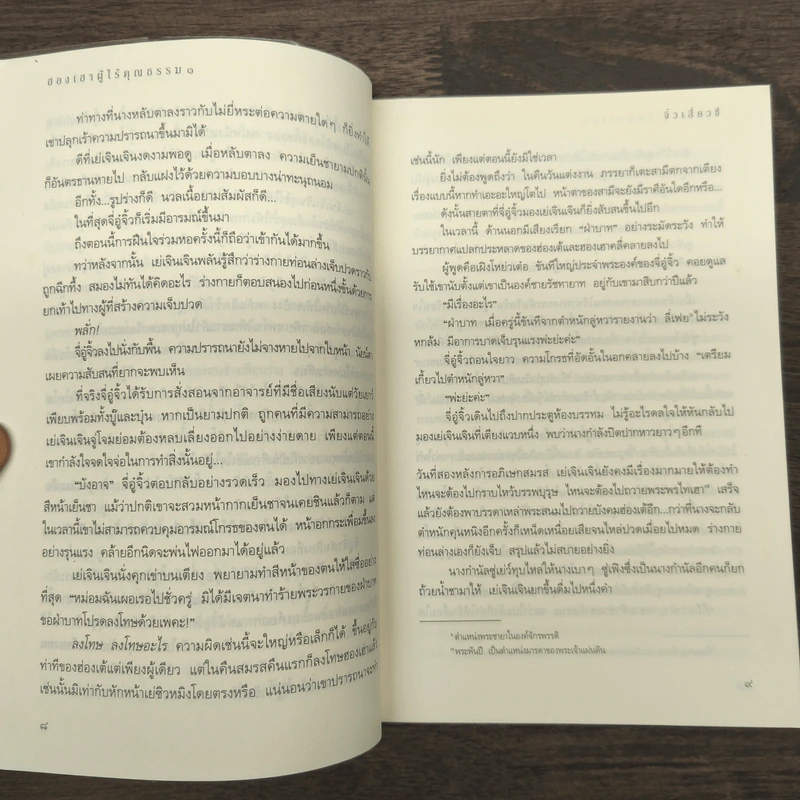 ฮองเฮาผู้ไร้คุณธรรม ๑
ท่าทางที่นางหลับตาลงราวกับไม่ยี่หระต่อความตายใดๆ ก็ยิ่งทำให้
เขาปลุกเร้าความปรารถนาขึ้นมามิได้
ดีที่เย่เจินเจินงดงามพอดู เมื่อหลับตาลง ความเย็นชายามปกตินั้น
ก็อันตรธานหายไป กลับแฝงไว้ด้วยความบอบบางน่าทะนุถนอม
อีกทั้ง...รูปร่างก็ดี นวลเนื้อยามสัมผัสก็ดี...
ในที่สุดจี่อู๋จิ้วก็เริ่มมีอารมณ์ขึ้นมา
ถึงตอนนี้การฝืนใจร่วมหอครั้งนี้ก็ถือว่าเข้ากันได้มากขึ้น
ทว่าหลังจากนั้น เย่เจินเจินพลันรู้สึกว่าร่างกายท่อนล่างเจ็บปวดราวกับ
ถูกฉีกทึ้ง สมองไม่ทันได้คิดอะไร ร่างกายก็ตอบสนองไปก่อนหนึ่งขั้นด้วยการ
ยกเท้าไปทางผู้ที่สร้างความเจ็บปวด
พลั่ก!
จี่อู๋จิ้วลงไปนั่งกับพื้น ความปรารถนายังไม่จางหายไปจากใบหน้า นัยน์ตา
เผยความสับสนที่ยากจะพบเห็น
ที่จริงจี่อู๋จิ้วได้รับการสั่งสอนจากอาจารย์ที่มีชื่อเสียงนับแต่วัยเยาว์
เพียบพร้อมทั้งบู๊และบุ๋น หากเป็นยามปกติ ถูกคนที่มีความสามารถอย่าง
เย่เจินเจินจู่โจมย่อมต้องหลบเลี่ยงออกไปอย่างง่ายดาย เพียงแต่ตอนนี้
เขากำลังใจจดใจจ่อในการทำสิ่งนั้นอยู่...
“บังอาจ” จี่อู๋จิ้วตอบกลับอย่างรวดเร็ว มองไปทางเย่เจินเจินด้วย
สีหน้าเย็นชา แม้ว่าปกติเขาจะสวมหน้ากากเย็นชาจนเคยชินแล้วก็ตาม แต่
ในเวลานี้เขาไม่สามารถควบคุมอารมณ์โกรธของตนได้ หน้าอกกระเพื่อมขึ้นลง
อย่างรุนแรง คล้ายอีกนิดจะพ่นไฟออกมาได้อยู่แล้ว
เย่เจินเจินนั่งคุกเข่าบนเตียง พยายามทำสีหน้าของตนให้ใสซื่ออย่าง
ที่สุด “หม่อมฉันเผอเรอไปชั่วครู่ มิได้มีเจตนาทำร้ายพระวรกายของฝ่าบาท
ขอฝ่าบาทโปรดลงโทษด้วยเพคะ!”
ลงโทษ ลงโทษอะไร ความผิดเช่นนี้จะใหญ่หรือเล็กก็ได้ ขึ้นอยู่กับ
ท่าทีของฮ่องเต้แต่เพียงผู้เดียว แต่ในคืนสมรสคืนแรกก็ลงโทษฮองเฮาแล้ว
เช่นนั้นมิเท่ากับหักหน้าเย่ซิวหมิงโดยตรงหรือ แน่นอนว่าเขาปรารถนาจะทำ
๘
จิ่วเสี่ยวชี
เช่นนี้นัก เพียงแต่ตอนนี้ยังมิใช่เวลา
ยิ่งไม่ต้องพูดถึงว่า ในคืนวันแต่งงาน ภรรยาก็เตะสามีตกจากเตียง
เรื่องแบบนี้หากทำเอะอะใหญ่โตไป หน้าตาของสามีจะยังมีราศีอันใดอีกหรือ...
ดังนั้นสายตาที่จี่อู๋จิ้วมองเย่เจินเจินก็ยิ่งสับสนขึ้นไปอีก
ในเวลานี้ ด้านนอกมีเสียงเรียก “ฝ่าบาท” อย่างระมัดระวัง ทำให้
บรรยากาศแปลกประหลาดของฮ่องเต้และฮองเฮาคลี่คลายลงไป
ผู้พูดคือเฝิงโหย่วเต๋อ ขันทีใหญ่ประจำพระองค์ของจี่อู๋จิ้ว คอยดูแล
รับใช้เขานับตั้งแต่เขาเป็นองค์ชายรัชทายาท อยู่กับเขามาสิบกว่าปีแล้ว
“มีเรื่องอะไร”
“ฝ่าบาท เมื่อครู่นี้ขันทีจากตำหนักลู่หวารายงานว่า ลี่เฟย* ไม่ระวัง
หกล้ม มีอาการบาดเจ็บรุนแรงพ่ะย่ะค่ะ”
จี่อู๋จิ้วถอนใจยาว ความโกรธที่อัดอั้นในอกคลายลงไปบ้าง “เตรียม
เกี้ยวไปตำหนักลู่หวา”
“พ่ะย่ะค่ะ”
จี่อู๋จิ้วเดินไปถึงปากประตูห้องบรรทม ไม่รู้อะไรดลใจให้หันกลับไป
มองเย่เจินเจินที่เตียงแวบหนึ่ง พบว่านางกำลังปิดปากหาวยาวๆ อีกที
วันที่สองหลังการอภิเษกสมรส เย่เจินเจินยังคงมีเรื่องมากมายให้ต้องทำ
ไหนจะต้องไปกราบไหว้บรรพบุรุษ ไหนจะต้องไปถวายพระพรไทเฮา** เสร็จ
แล้วยังต้องพาบรรดาเหล่าพระสนมไปถวายบังคมฮ่องเต้อีก...กว่าที่นางจะกลับ
ตำหนักคุนหนิงอีกครั้งก็เหน็ดเหนื่อยเสียจนไหล่ปวดเมื่อยไปหมด ร่างกาย
ท่อนล่างเองก็ยังเจ็บ สรุปแล้วไม่สบายอย่างยิ่ง
นางกำนัลซู่เยว์ทุบไหล่ให้นางเบาๆ ซู่เฟิงซึ่งเป็นนางกำนัลอีกคนก็ยก
ถ้วยน้ำชามาให้ เย่เจินเจินยกขึ้นดื่มไปหนึ่งคำ
* ตำแหน่งพระชายาในองค์จักรพรรดิ
** พระพันปี เป็นตำแหน่งมารดาของพระเจ้าแผ่นดิน
๙